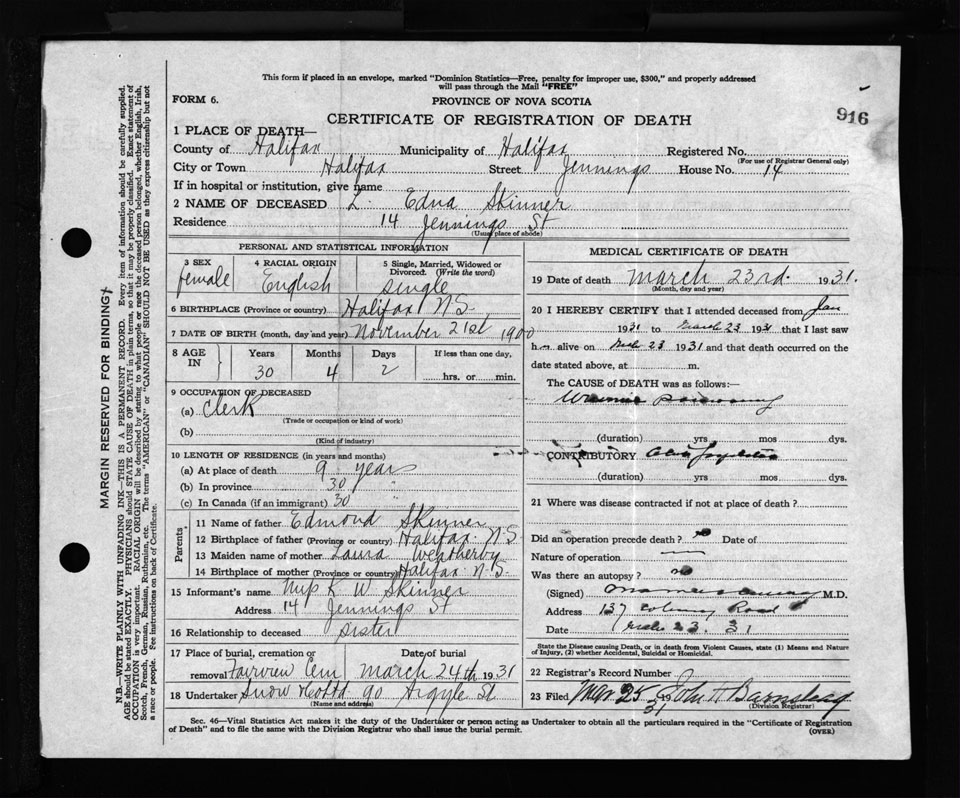 This form if placed in an envelope, marked "Dominion Statistics—Free, penalty for improper use, $300," and properly addressed
will pass through the Mail "FREE"
FORM 6.
PROVINCE OF NOVA SCOTIA
916
CERTIFICATE OF REGISTRATION OF DEATH
1 PLACE OF DEATH—
County of Halifax Municipality of Halifax Registered No.
(For use of Registrar General only)
City or Town Halifax Street Jennings House No. 14
If in hospital or institution, give name
2 NAME OF DECEASED L. Edna Skinner
Residence 14 Jennings St
(Usual place of abode)
PERSONAL AND STATISTICAL INFORMATION
3 SEX female
4 RACIAL ORIGIN English
5 Single, Married, Widowed or Divorced. (Write the word) single
6 BIRTHPLACE (Province or country) Halifax N S
7 DATE OF BIRTH (month, day and year) November 21st 1900
8 AGE IN Years Months Days If less than one day,
30 4 2 hrs. or min.
9 OCCUPATION OF DECEASED
(a) Clerk
(Trade or occupation or kind of work)
(b)
(Kind of industry)
10 LENGTH OF RESIDENCE (in years and months)
(a) At place of death 9 years
(b) In province 30 "
(c) In Canada (if an immigrant) 30 "
Parents
11 Name of father Edmond Skinner
12 Birthplace of father (Province or country) Halifax N S
13 Maiden name of mother Laura Weatherby
14 Birthplace of mother (Province or country) Halifax N S
15 Informant's name K W Skinner
Address 14 Jennings St
16 Relationship to deceased sister
17 Place of burial, cremation or removal Fairview Cem
Date of burial March 24th 1931
18 Undertaker Snow 90 Argyle St
(Name and address)
MEDICAL CERTIFICATE OF DEATH
19 Date of death March 23rd 1931.
(Month, day and year)
20 I HEREBY CERTIFY that I attended deceased from Jan
1931 to March 23 1931 that I last saw
h alive on 23 1931 and that death occurred on the
date stated above, at m.
The CAUSE of DEATH was as follows:—
(duration) yrs mos dys.
CONTRIBUTORY
(duration) yrs mos dys.
21 Where was disease contracted if not at place of death?
Did an operation precede death? no Date of
Nature of operation —
Was there an autopsy? no
(Signed) M.D.
Address 137 Road
Date 23. 31
State the Disease causing Death, or in death from Violent Causes, state (1) Means and Nature
of Injury, (2) whether Accidental, Suicidal or Homicidal.
22 Registrar's Record Number
23 Filed Mar 25 31 John H Barnstead
(Division Registrar)
Sec. 46—Vital Statistics Act makes it the duty of the Undertaker or person acting as Undertaker to obtain all the particulars required in the "Certificate of Registration
of Death" and to file the same with the Division Registrar who shall issue the burial permit.
(OVER)
MARGIN RESERVED FOR BINDING
N.B.—WRITE PLAINLY WITH UNFADING INK—THIS IS A PERMANENT RECORD. Every item of information should be carefully supplied.
AGE should be stated EXACTLY. PHYSICIANS should STATE CAUSE OF DEATH in plain terms, so that it may be properly classified. Exact statement of
OCCUPATION is very important. RACIAL ORIGIN will be described by stating to what people or race the deceased person belonged, whether English, Irish,
Scotch, French, German, Russian, Ruthenian, etc. The terms "AMERICAN" or "CANADIAN" SHOULD NOT BE USED as they express citizenship but not
a race or people. See instructions on back of Certificate.